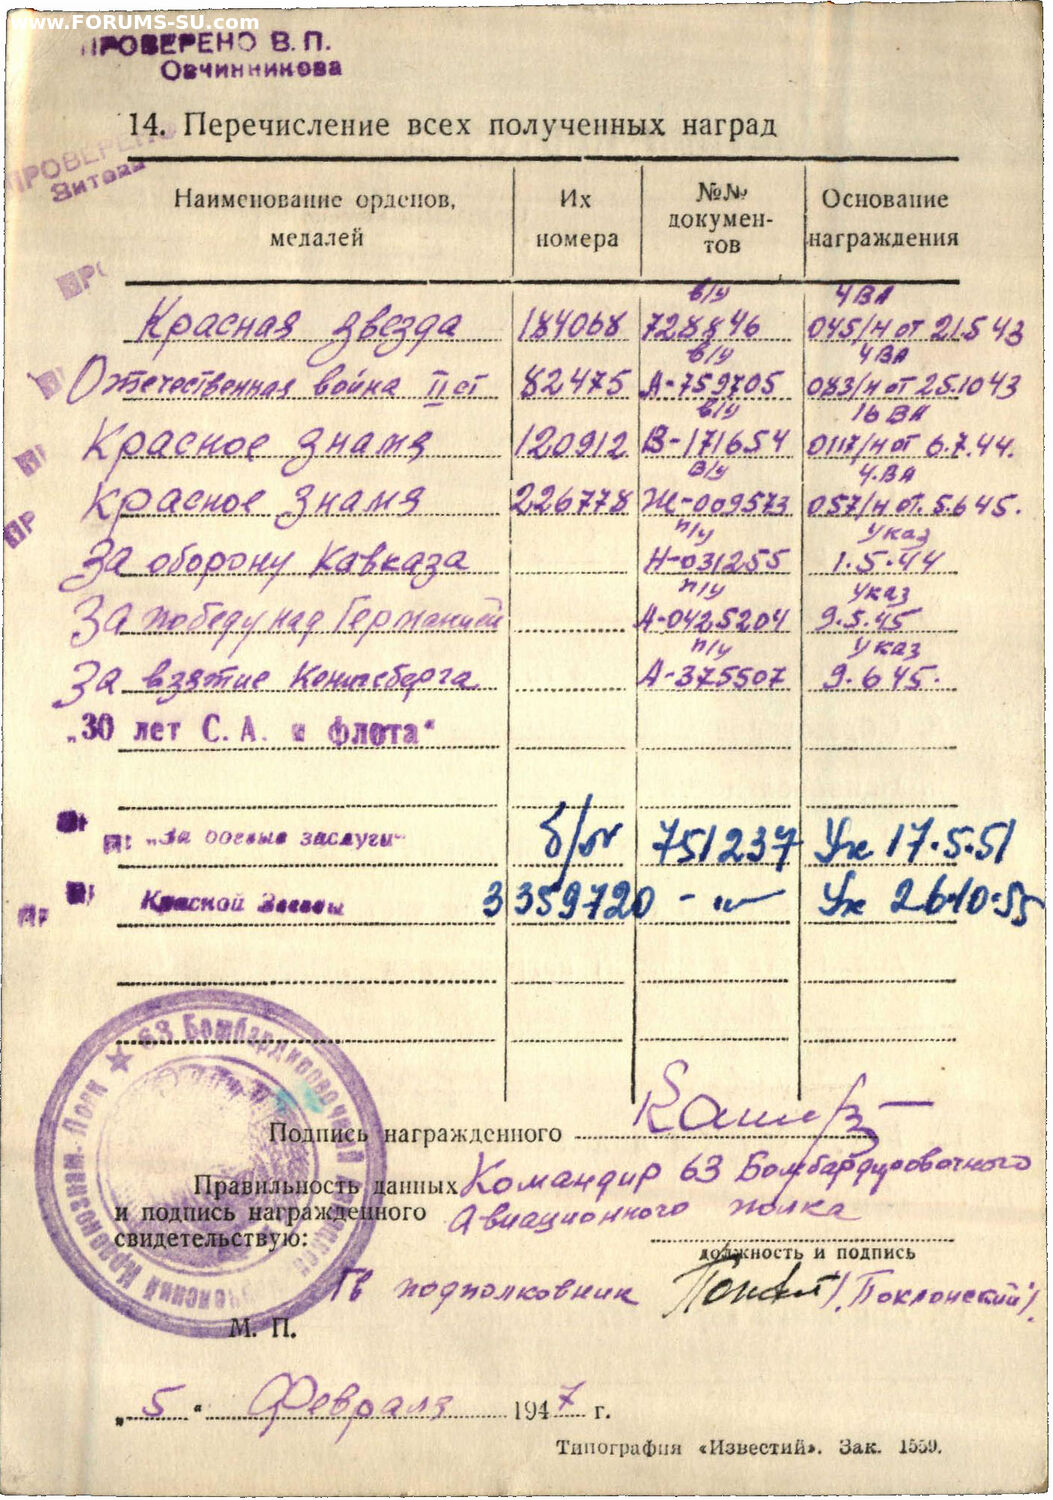 www.FORUMS-SU.com
ПРОВЕРЕНО В. П.
Овчинникова
14. Перечисление всех полученных наград
ПРОВЕРЕНО
Наименование орденов, медалей
Их номера
№№ документов
Основание награждения
в/у 4 ВА
Красная звезда 184068 728846 045/н от 21.5 43
в/у 4 ВА
Отечественная война II ст 82475 А-759705 083/н от 25.10 43
в/у 16 ВА
Красное знамя 120912 В-171654 0117/н от 6.7.44.
в/у 4.ВА
Красное знамя 226778 Ж-009573 057/н от. 5.6 45.
п/у Указ
За оборону Кавказа Н-031255 1.5.44
п/у Указ
За победу над Германией А-0425204 9.5.45
п/у Указ
За взятие Кенигсберга А-375507 9.6 45.
„30 лет С. А. и флота"
„За боевые заслуги" б/н 751237 Ук 17.5.51
Красной Звезды 3359720 -"- Ук 26.10.55
63 Бомбардировочный
Краснознам. Полк
Подпись награжденного
Правильность данных Командир 63 Бомбардировочного
и подпись награжденного Авиационного полка
свидетельствую:
должность и подпись
Гв подполковник /Поклонский/.
М. П.
„5" Февраля 1947 г.
Типография «Известий». Зак. 1559.